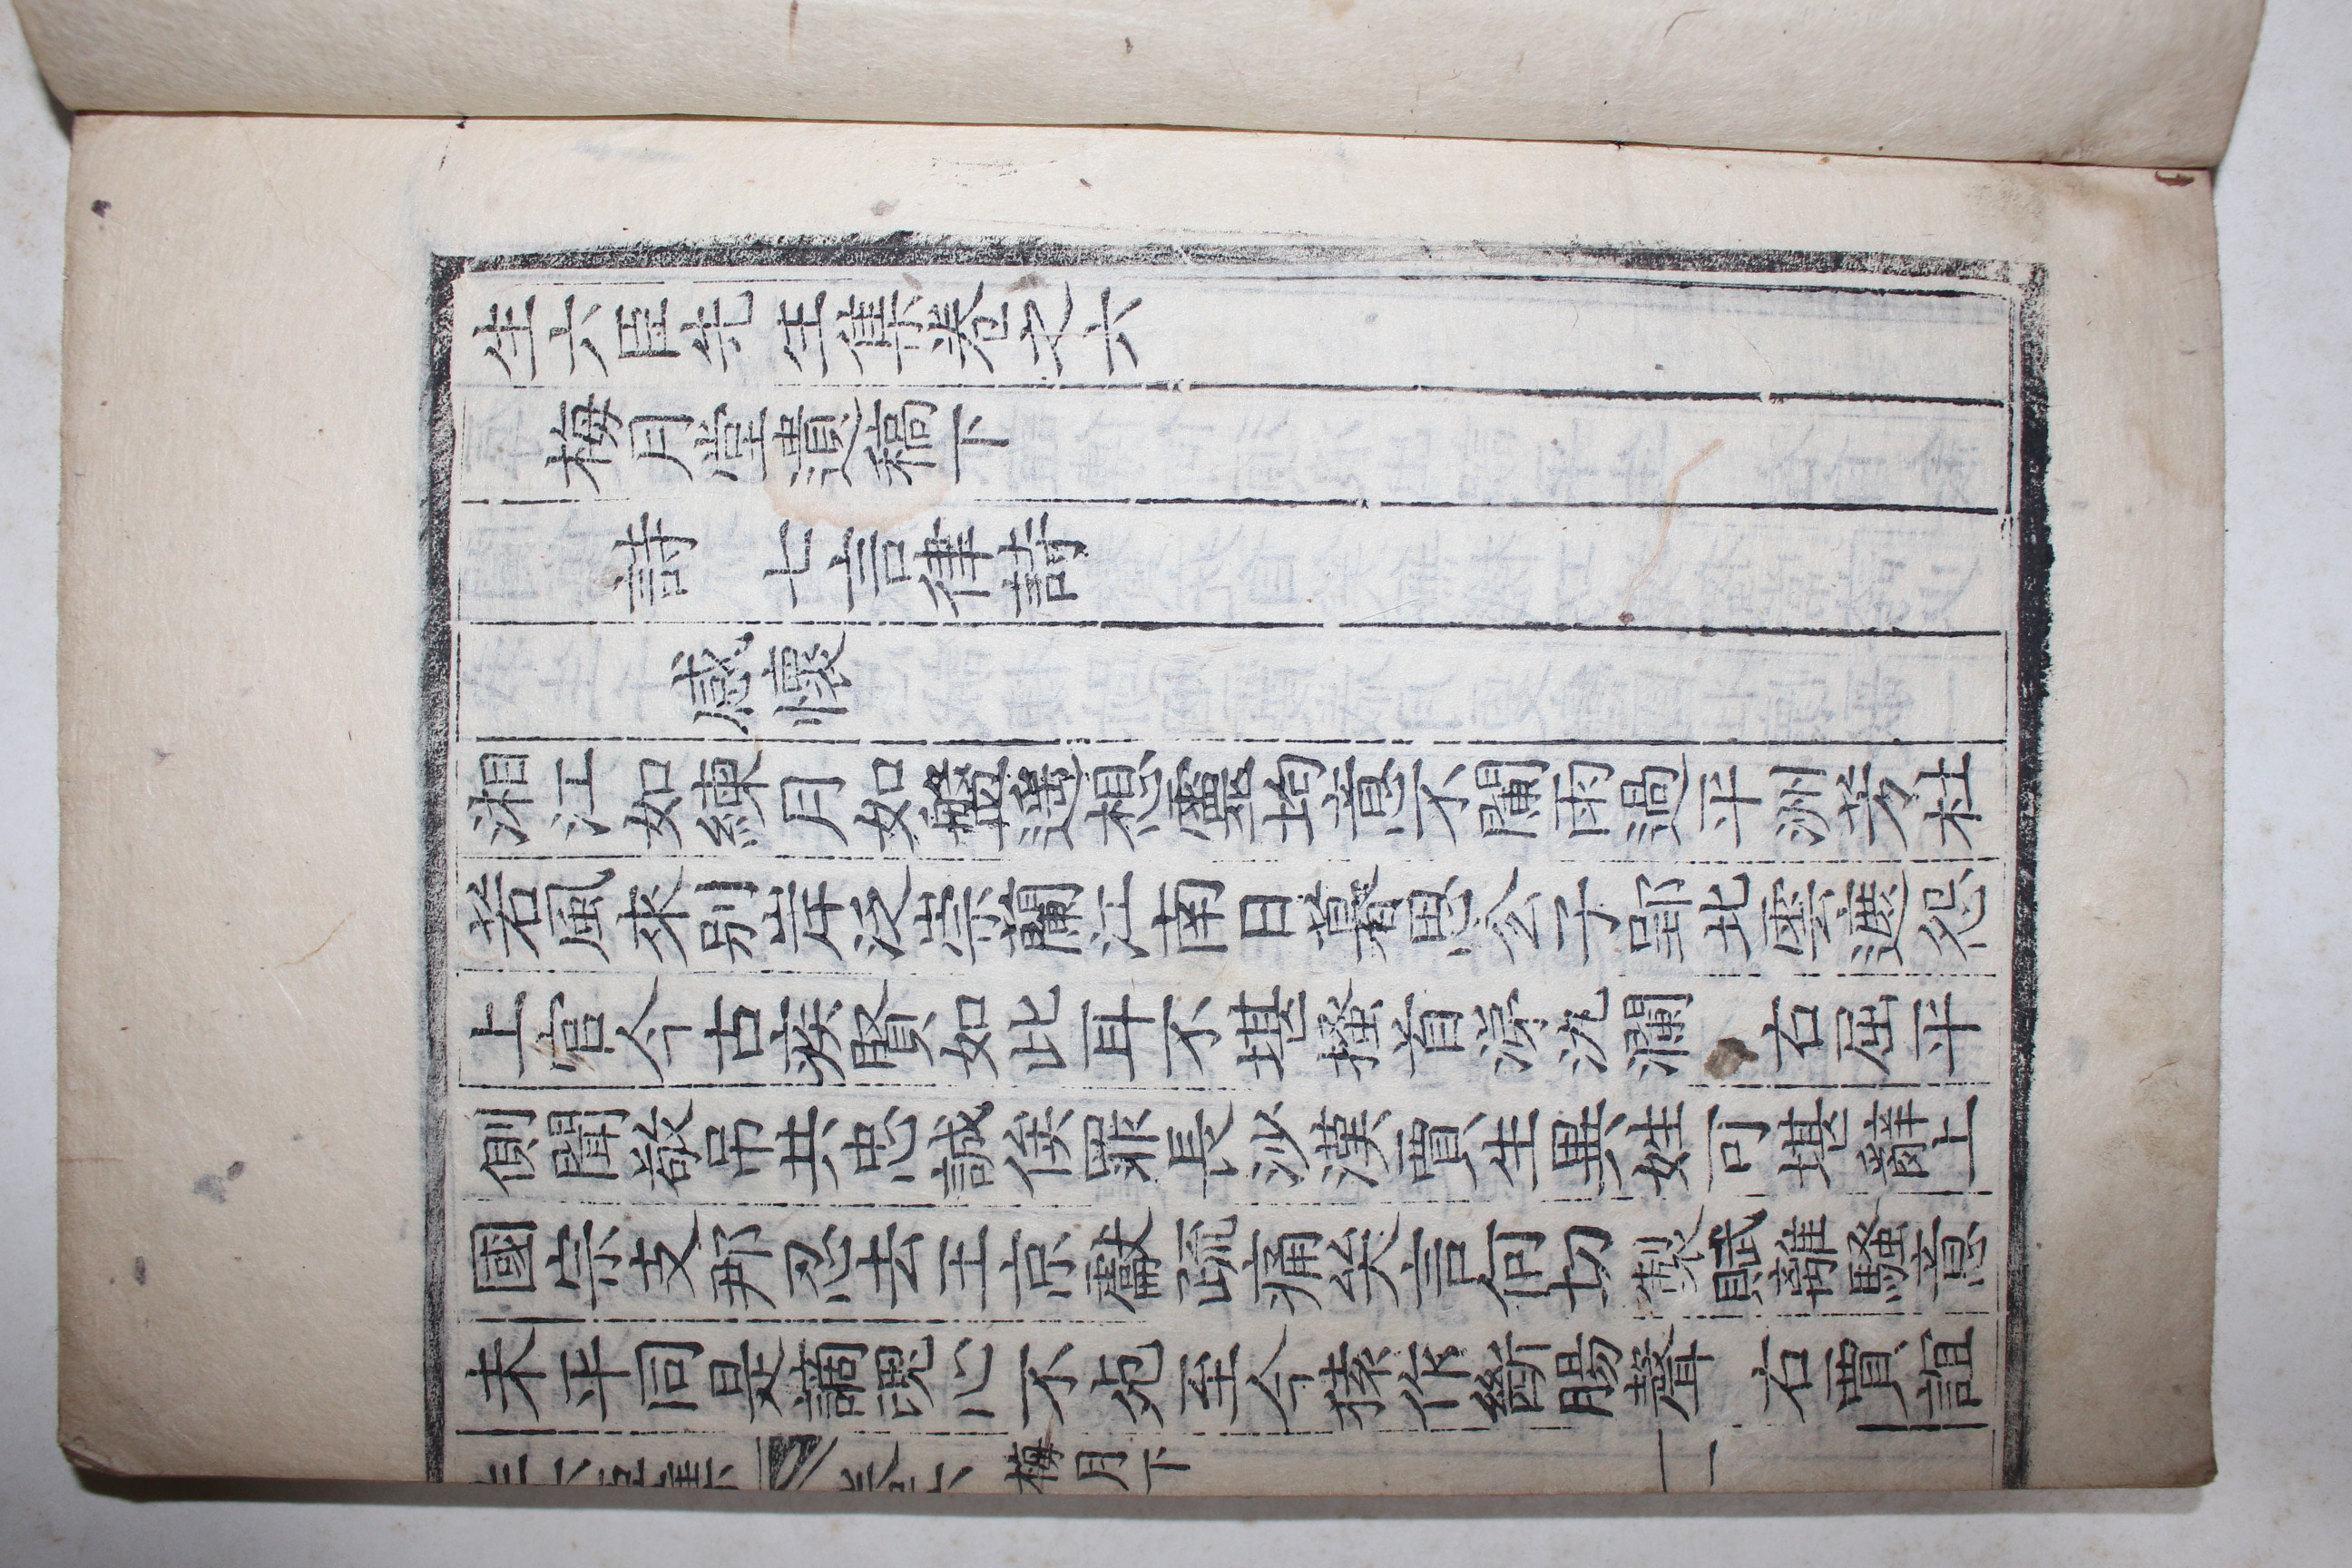 生六臣先生集卷之六
梅月堂遺稿下
詩 七言律詩
感懷
湘江如練月如盤遙想靈均意不闌雨過平洲芳杜
若風來別岸泛崇蘭江南日暮思公子郢北雲遮怨
上官今古疾賢如此耳不堪搔首淚汍瀾 右屈平
側聞敬吊共忠誠俟罪長沙漢賈生異姓可堪辭上
國宗支那忍去王京獻疏痛哭言何切製賦離騷意
未平同是謫魂心不死至今猿作斷膓聲 右賈誼
生六臣集 卷六 梅月下